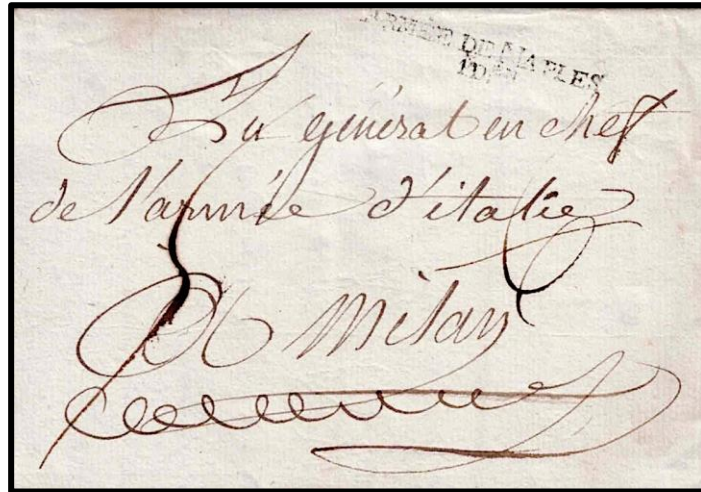 ARMÉE DE NAPLES
1D.on
Au général en chef
de l'armée d'italie
A Milan